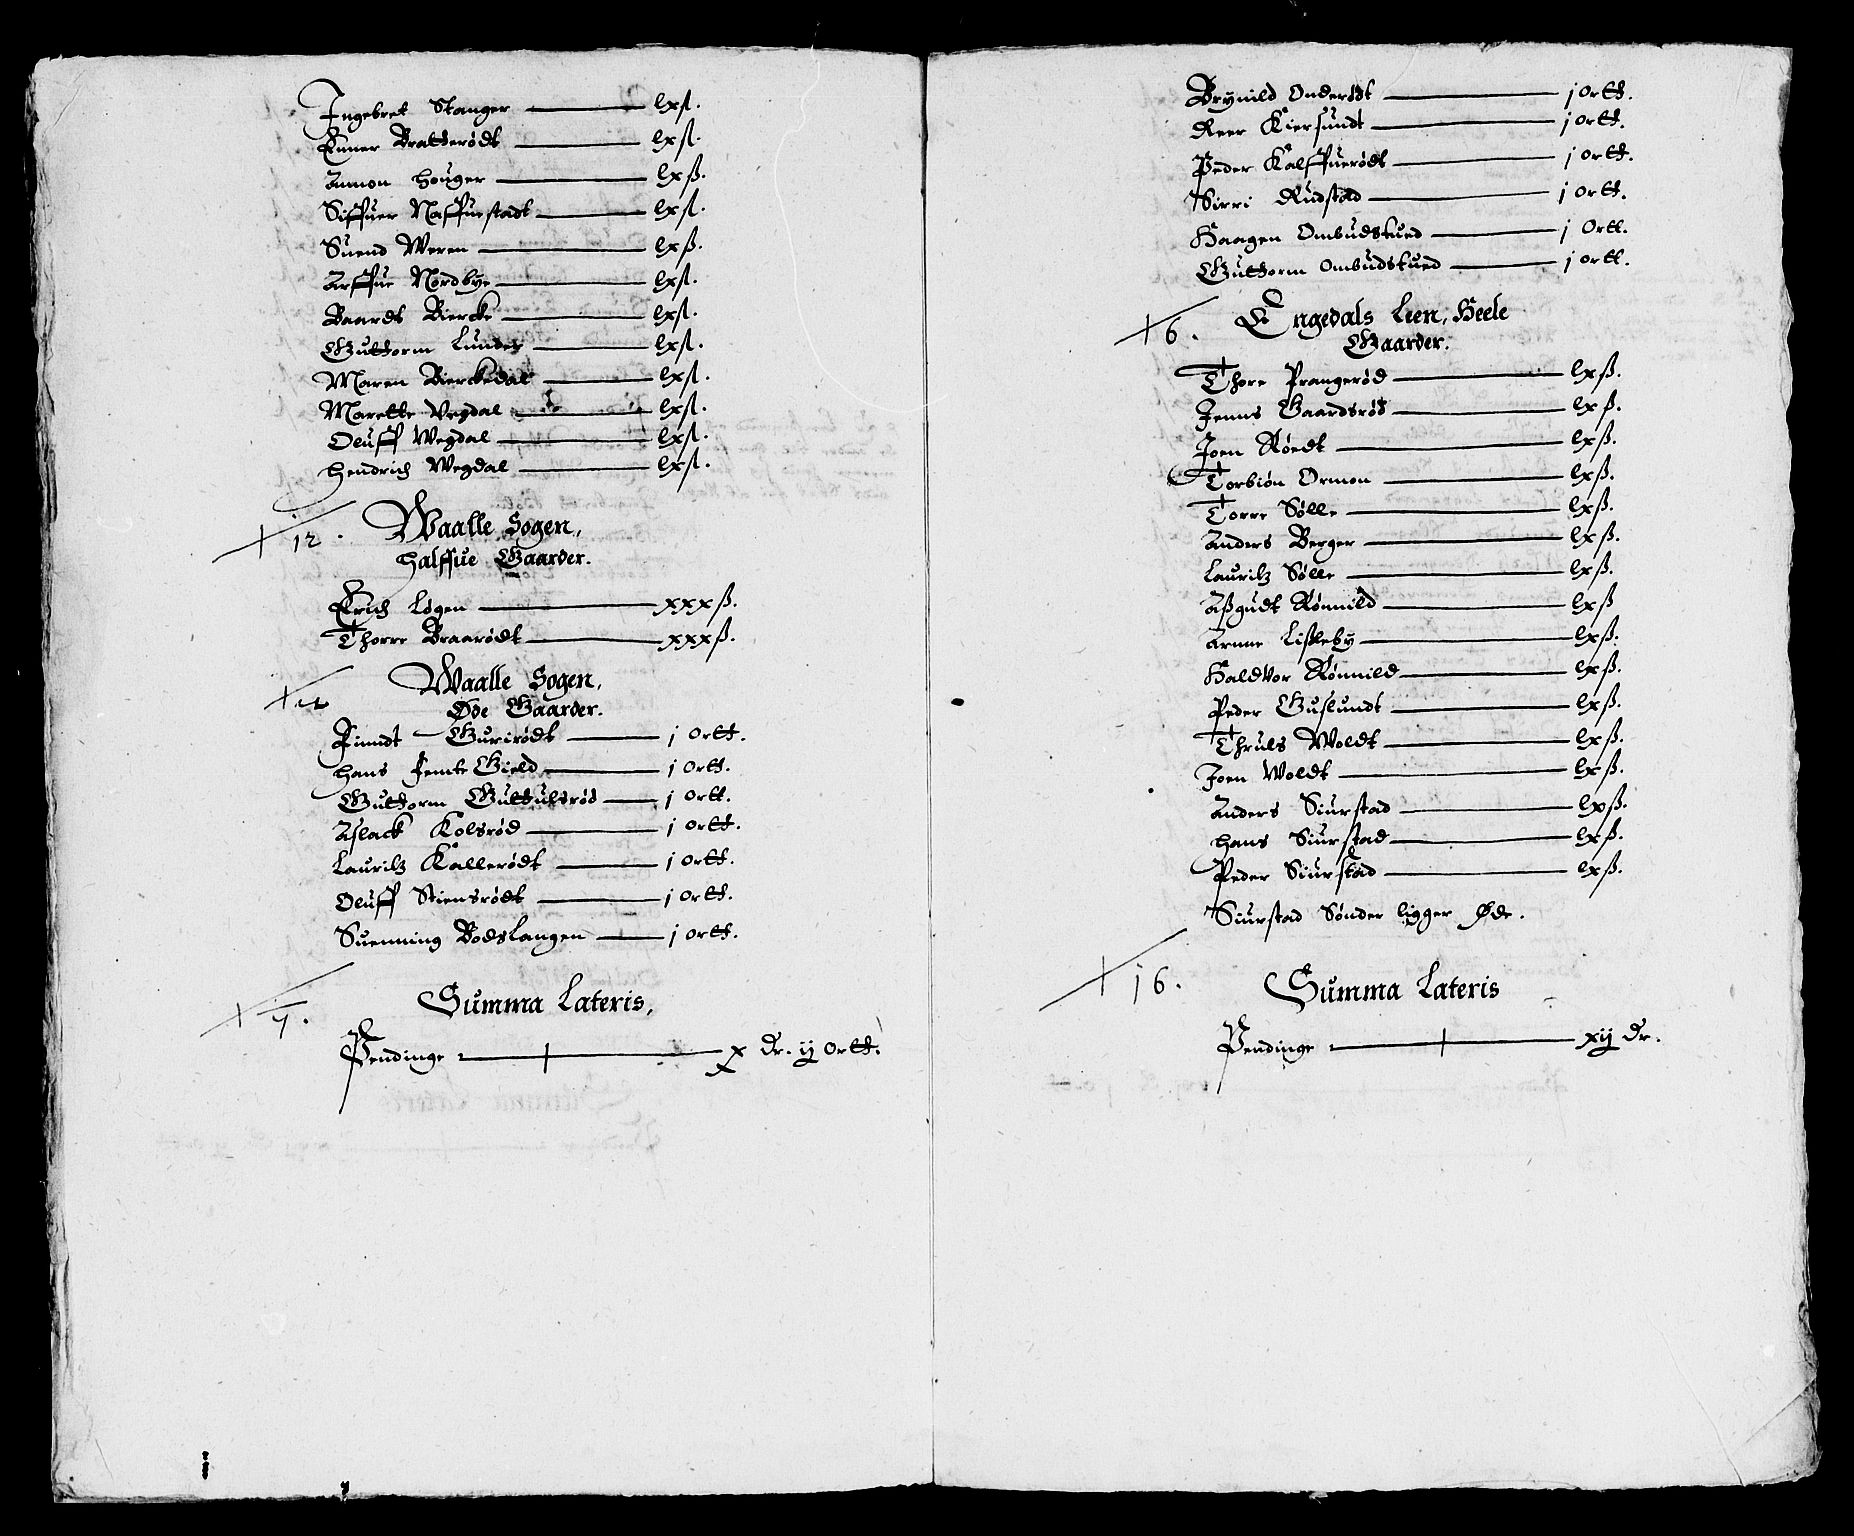 Ingebret Stanger — lxß.
Einer Bratterødt — lxß.
Ammon Houger — lxß.
Siffuer Naffuestadt — lxß.
Suend Weren — lxß.
Arffue Nordbye — lxß.
Baardt Biercke — lxß.
Guttorm Lunder — lxß.
Maren Bierckedal — lxß.
Marette Vegdal — lxß.
Oluff Wegdal — lxß.
Hendrich Wegdal — lxß.
12. Waalle Sogen,
Halffue Gaarder.
Erich Løgen — xxxß.
Thorre Braarødt — xxxß.
Waalle Sogen,
Øde Gaarder.
Finndt Gurirødt — j Ortt.
Hans Jemte Gield — j Ortt.
Guttorm Guttulsrød — j Ortt.
Aslack Kolsrød — j Ortt.
Lauritz Kallerødt — j Ortt.
Oluff Stiensrødt — j Ortt.
Suenning Bodslangen — j Ortt.
7. Summa Lateris,
Pendinge — x Dr. ij Ortt.
Brynild Onderødt — j Ortt.
Reer Kiersundt — j Ortt.
Peder Kalffuerødt — j Ortt.
Sirri Rudstad — j Ortt.
Haagen Ombudstued — j Ortt.
Guttorm Ombudstued — j Ortt.
6. Engedals Leen, Heele
Gaarder.
Thore Prangerød — lxß.
Jenns Gaardsrød — lxß.
Joen Røedt — lxß.
Torbiøn Ormon — lxß.
Torre Sølle — lxß.
Anders Berger — lxß.
Lauritz Sølle — lxß.
Aßgudt Rønnild — lxß
Arnne Lisleby — lxß.
Haldvor Rønnild — lxß.
Peder Guslundt — lxß.
Thruls Woldt — lxß.
Joen Woldt — lxß.
Anders Siurstad — lxß.
Hans Siurstad — lxß.
Peder Siurstad — lxß.
Siurstad Sønder ligger Øde.
16. Summa Lateris
Pendinge — xij Dr.